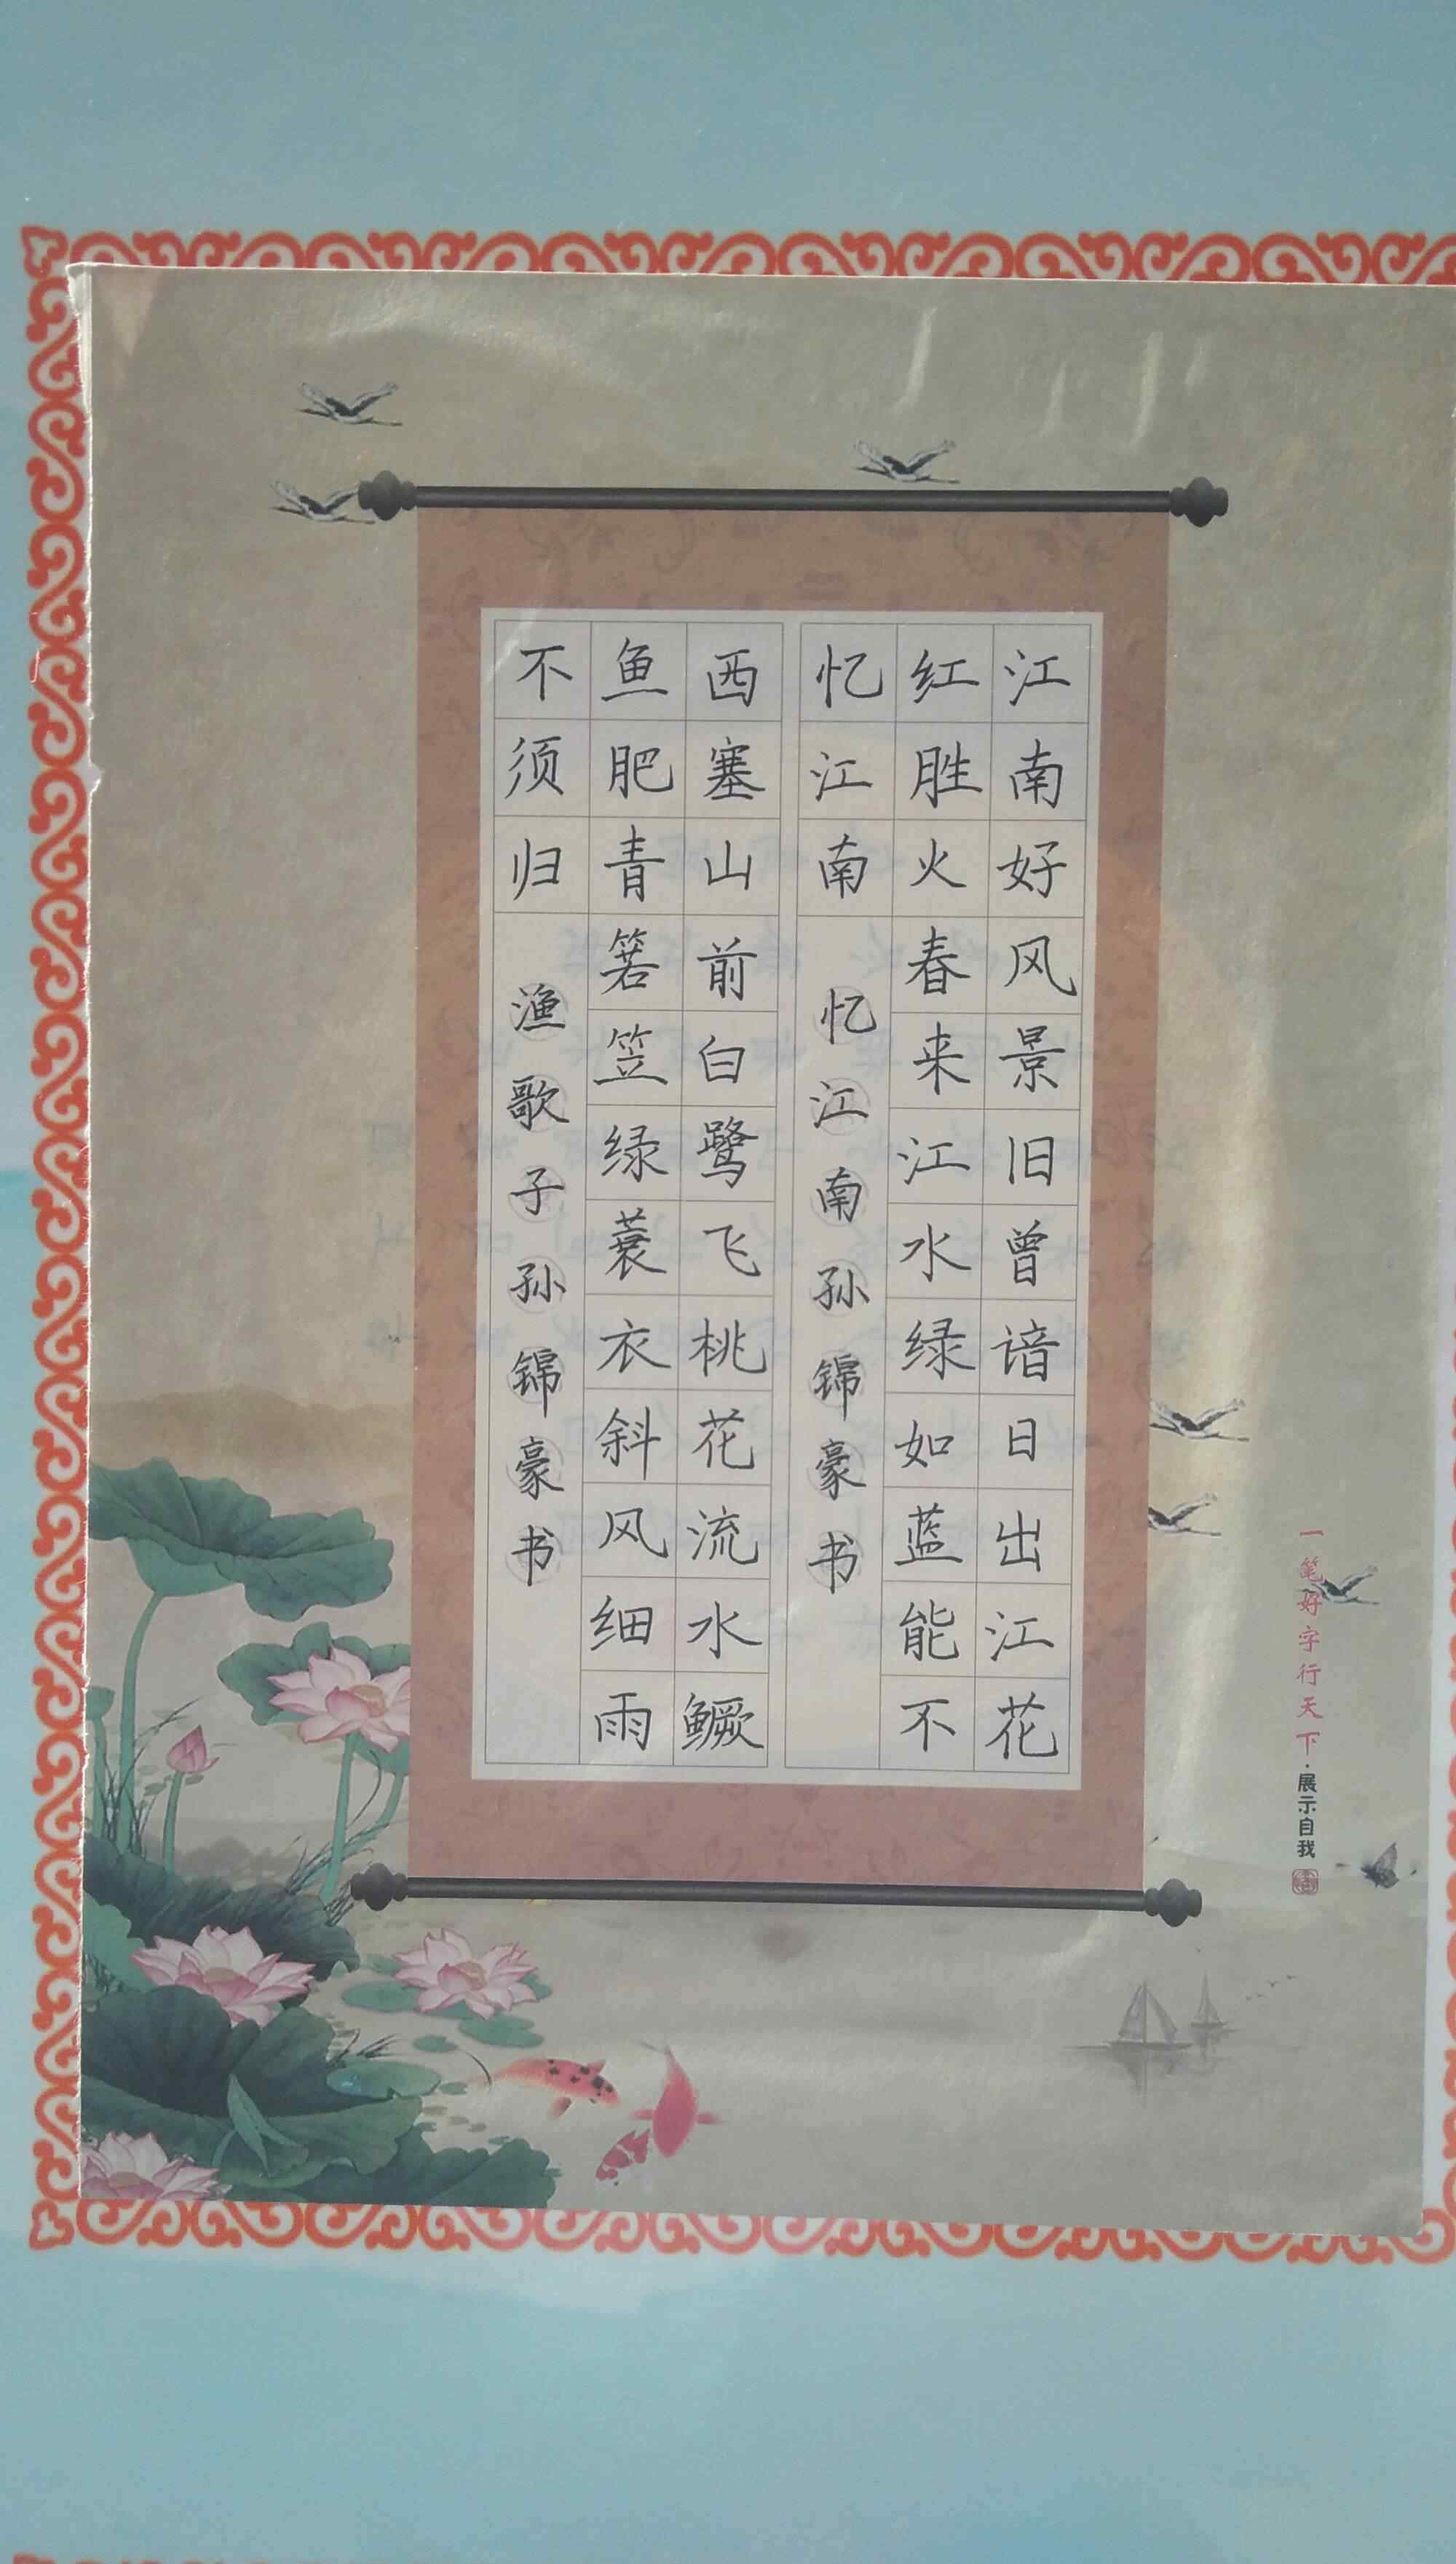 江南好风景旧曾谙日出江花
红胜火春来江水绿如蓝能不
忆江南
忆江南孙锦豪书
西塞山前白鹭飞桃花流水鳜
鱼肥青箬笠绿蓑衣斜风细雨
不须归
渔歌子孙锦豪书
一笔好字行天下·展示自我